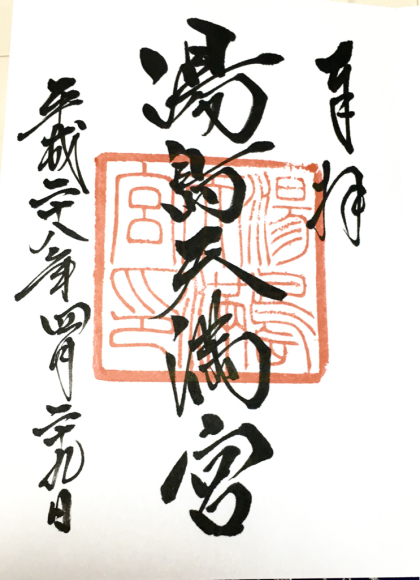 奉拝
湯島天満宮
平成二十八年四月二十九日
湯島天満宮印